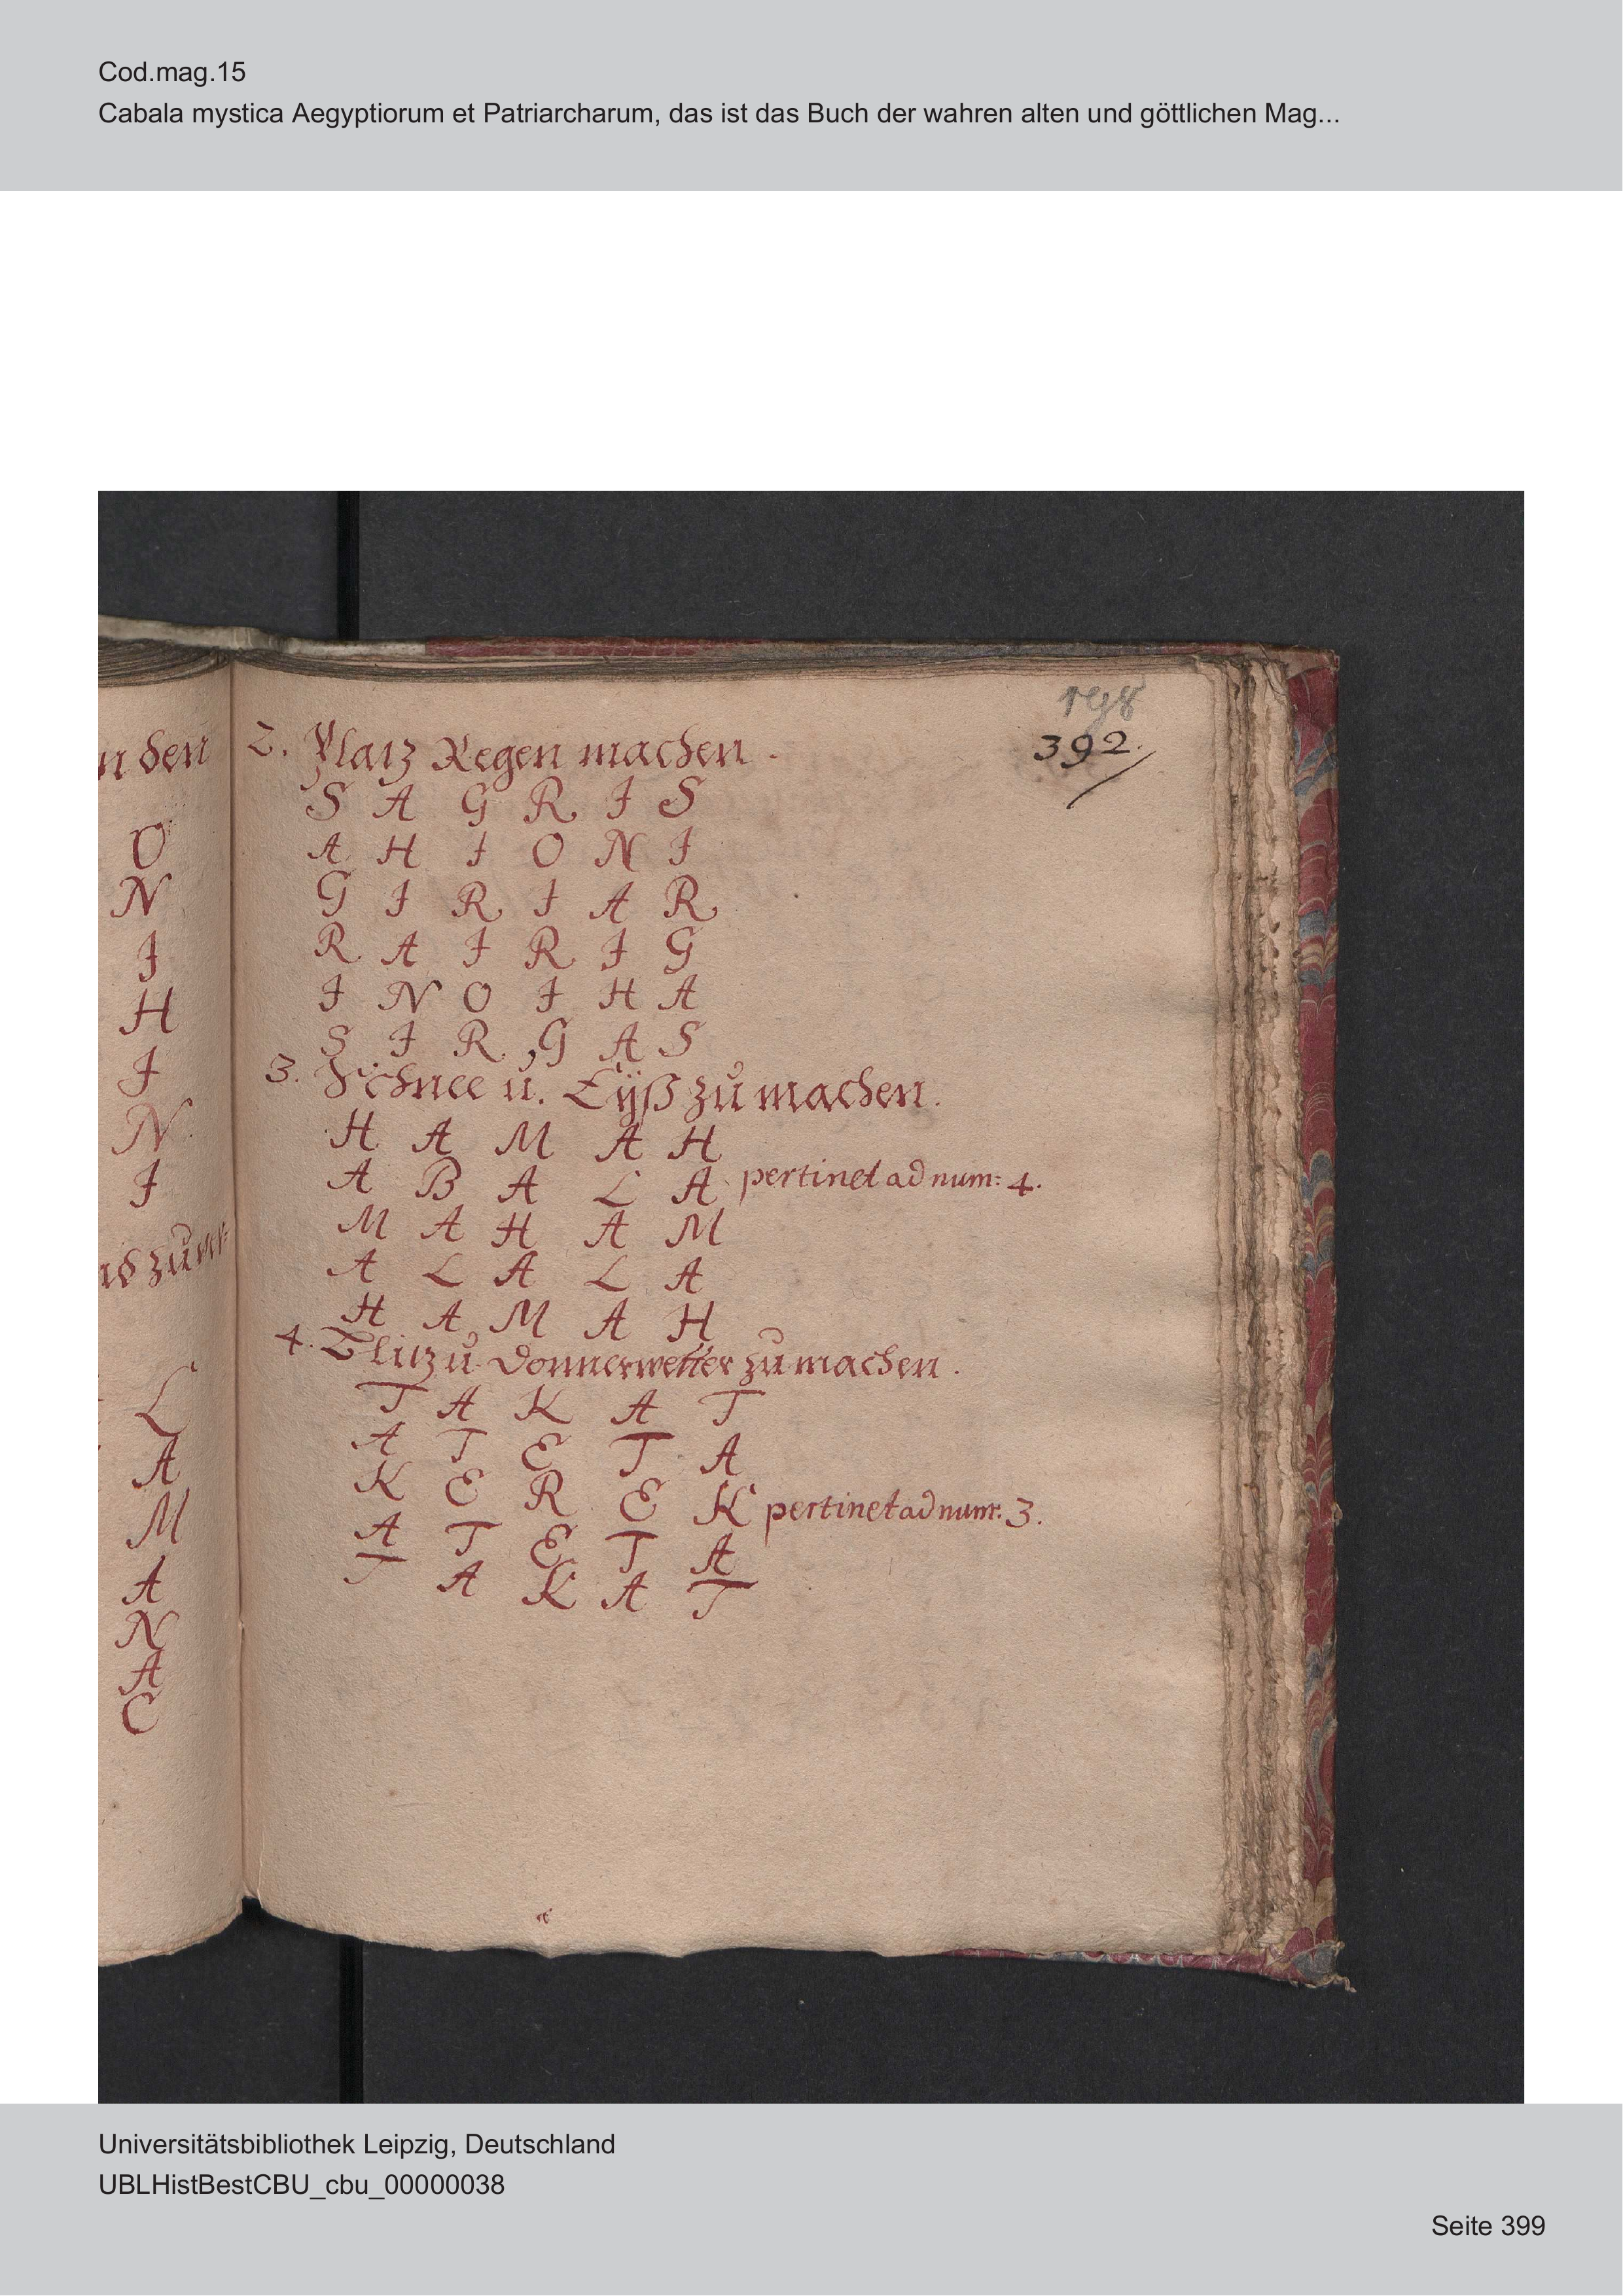 Cod.mag.15
Cabala mystica Aegyptiorum et Patriarcharum, das ist das Buch der wahren alten und göttlichen Mag...
198
392.
n den
O
N
I
H
I
N
I
L
A
M
A
N
A
C
2. Platz Regen machen.
S A G R I S
A H I O N I
G I R I A R
R A I R I G
I N O I H A
S I R G A S
3. Schnee u. Eÿß zu machen.
H A M A H
A B A L A pertinet ad num: 4.
M A H A M
A L A L A
H A M A H
4. Blitz u. Donnerwetter zu machen.
T A K A T
A T E T A
K E R E K pertinet ad num: 3.
A T E T A
T A K A T
Universitätsbibliothek Leipzig, Deutschland
UBLHistBestCBU_cbu_00000038
Seite 399